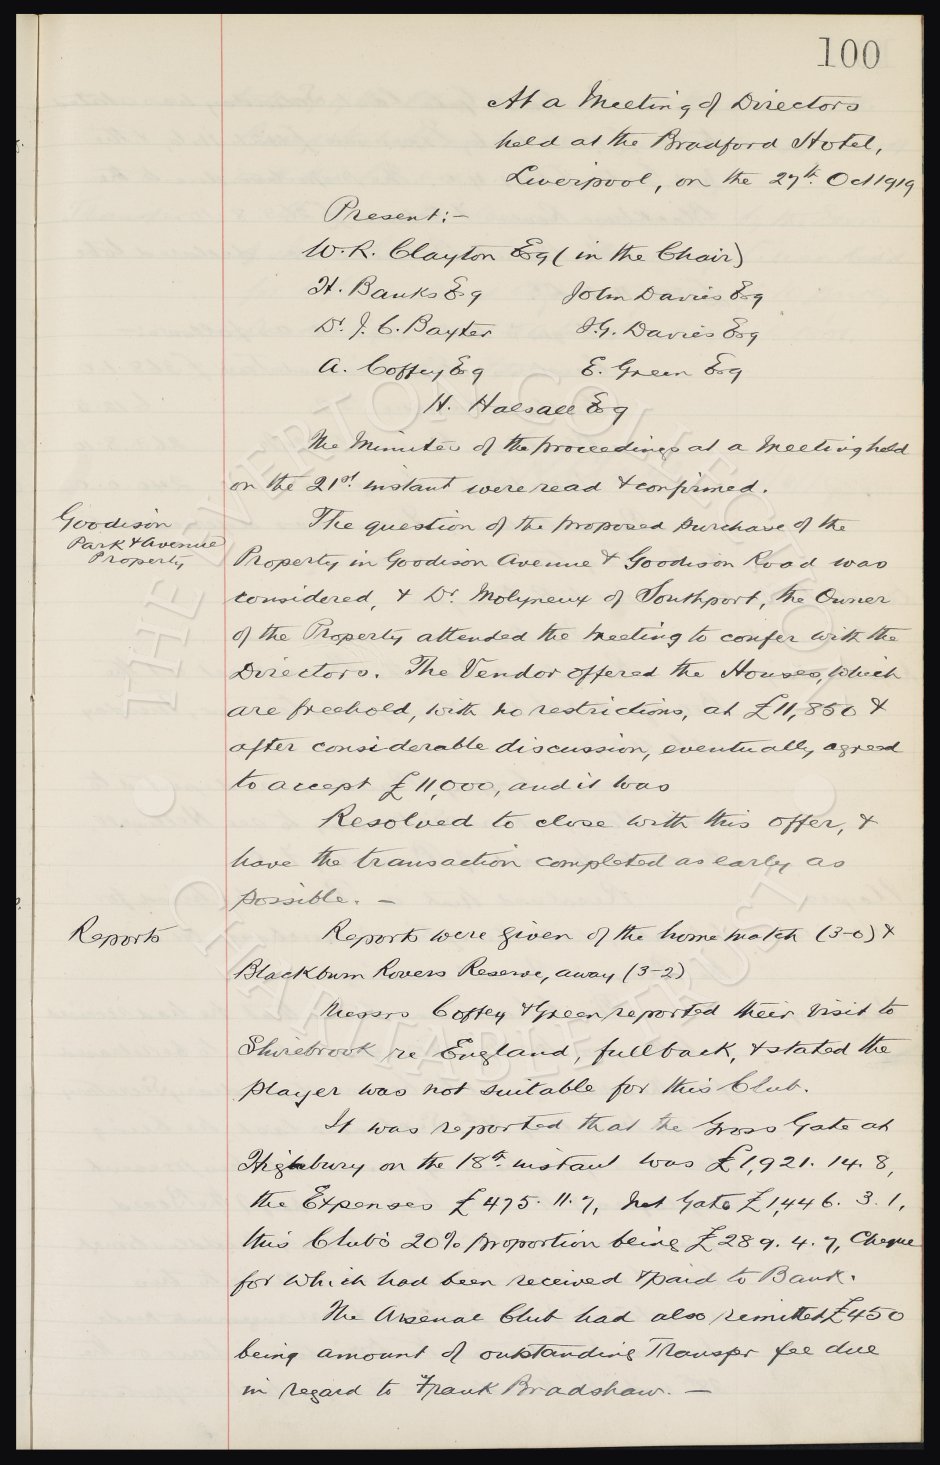 100
At a Meeting of Directors
held at the Bradford Hotel,
Liverpool, on the 27th. Oct 1919
Present:-
W.R. Clayton Esq (in the Chair)
H. Banks Esq John Davies Esq
Dr. J. C. Baxter J.G. Davies Esq
A. Coffey Esq E. Green Esq
H. Halsall Esq
The Minutes of the proceedings at a Meeting held
on the 21st. instant were read & confirmed.
Goodison
Park & Avenue
Property
The question of the proposed purchase of the
Property in Goodison Avenue & Goodison Road was
considered, & Dr. Molyneux of Southport, the Owner
of the Property attended the Meeting to confer with the
Directors. The Vendor offered the Houses, which
are freehold, with no restrictions, at £11,850 &
after considerable discussion, eventually agreed
to accept £11,000, and it was
Resolved to close with this offer, &
have the transaction completed as early as
possible. -
Reports
Reports were given of the home match (3-0) &
Blackburn Rovers Reserve, away (3-2)
Messrs Coffey & Green reported their visit to
Shirebrook re England, full back, & stated the
player was not suitable for this Club.
It was reported that the Gross Gate at
Highbury on the 18th. instant was £1,921. 14. 8,
the Expenses £475. 11. 7, Net Gate £1,446. 3. 1,
this Club's 20% proportion being £289. 4. 7, Cheque
for which had been received & paid to Bank.
The Arsenal Club had also remitted £450
being amount of outstanding Transfer fee due
in regard to Frank Bradshaw. -
THE EVERTON COLLECTION CHARITABLE TRUST